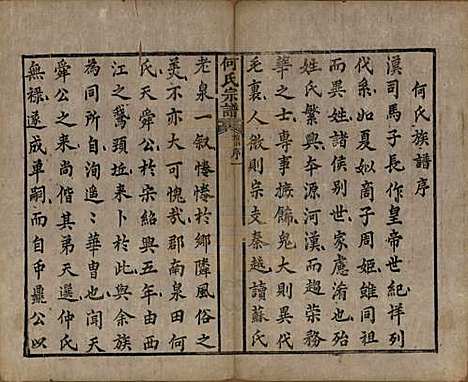 何氏族譜序
漢司馬子長作皇帝世紀祥列
代系如夏姒商子周姬雖同祖
而異姓諸侯别世家慮淆也殆
姓氏繁興本源河漢而趨榮務
華之士專事摭飾鬼大則異代
毛裏人微則宗支秦越讀蘇氏
何氏宗譜
老泉一叙惓惓於鄉隣風俗之
美不亦大可愧哉郡南泉田何
氏天舜公於宗紹興五年由吉
江之鵞頸垃上下止此與余族
為同所自洵遥遥華曽也聞天
舜公之來尚倚其弟天選仲氏
無禄遂成單嗣而自中鼎公以